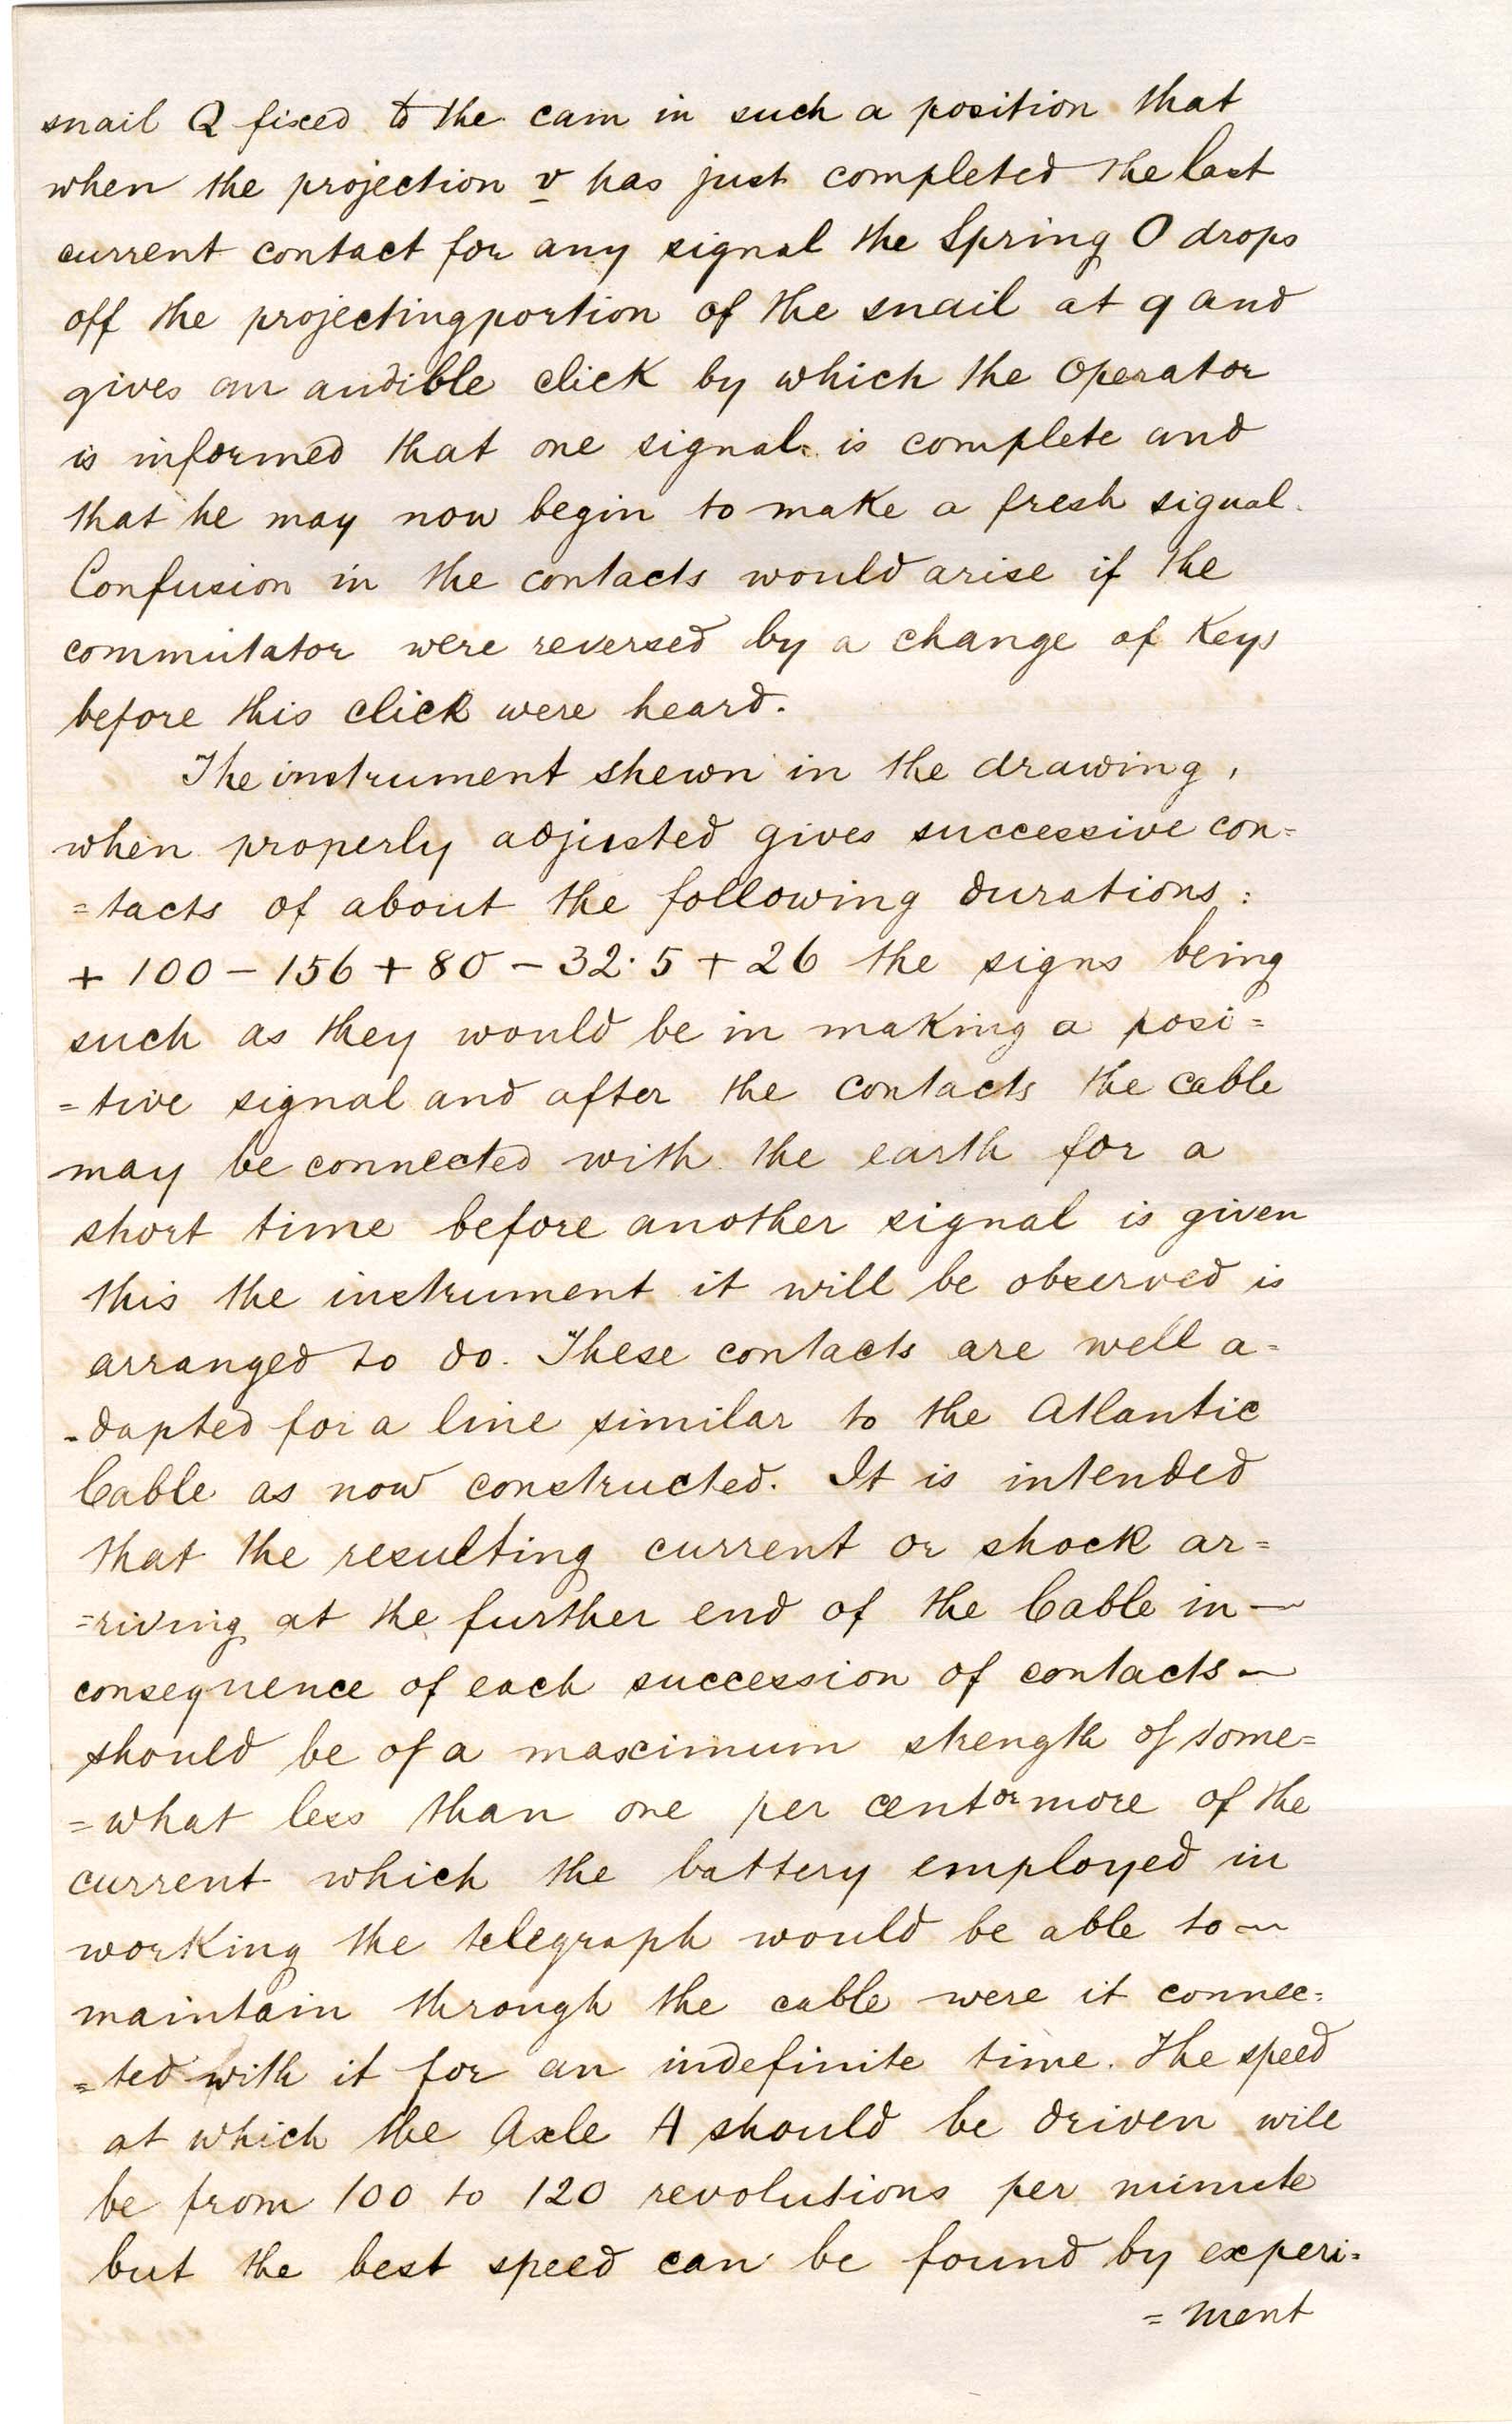 snail Q fixed to the cam in such a position that
when the projection v has just completed the last
current contact for any signal the Spring O drops
off the projecting portion of the snail at q and
gives an audible click by which the Operator
is informed that one signal is complete and
that he may now begin to make a fresh signal.
Confusion in the contacts would arise if the
commutator were reversed by a change of Keys
before this click were heard.
The instrument shewn in the drawing,
when properly adjusted gives successive con=
=tacts of about the following durations:
+ 100 - 156 + 80 - 32·5 + 26 the signs being
such as they would be in making a posi=
=tive signal and after the contacts the cable
may be connected with the earth for a
short time before another signal is given
this the instrument it will be observed is
arranged to do. These contacts are well a=
=dapted for a line similar to the Atlantic
Cable as now constructed. It is intended
that the resulting current or shock ar=
=riving at the further end of the Cable in—
consequence of each succession of contacts—
should be of a maximum strength of some=
=what less than one per cent or more of the
current which the battery employed in
working the telegraph would be able to—
maintain through the cable were it connec=
=ted with it for an indefinite time. The speed
at which the Axle A should be driven will
be from 100 to 120 revolutions per minute
but the best speed can be found by experi=
=ment